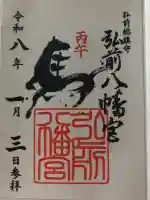 弘前総鎮守
弘前八幡宮
丙午
令和八年
一月三日参拝
弘前
八幡宮